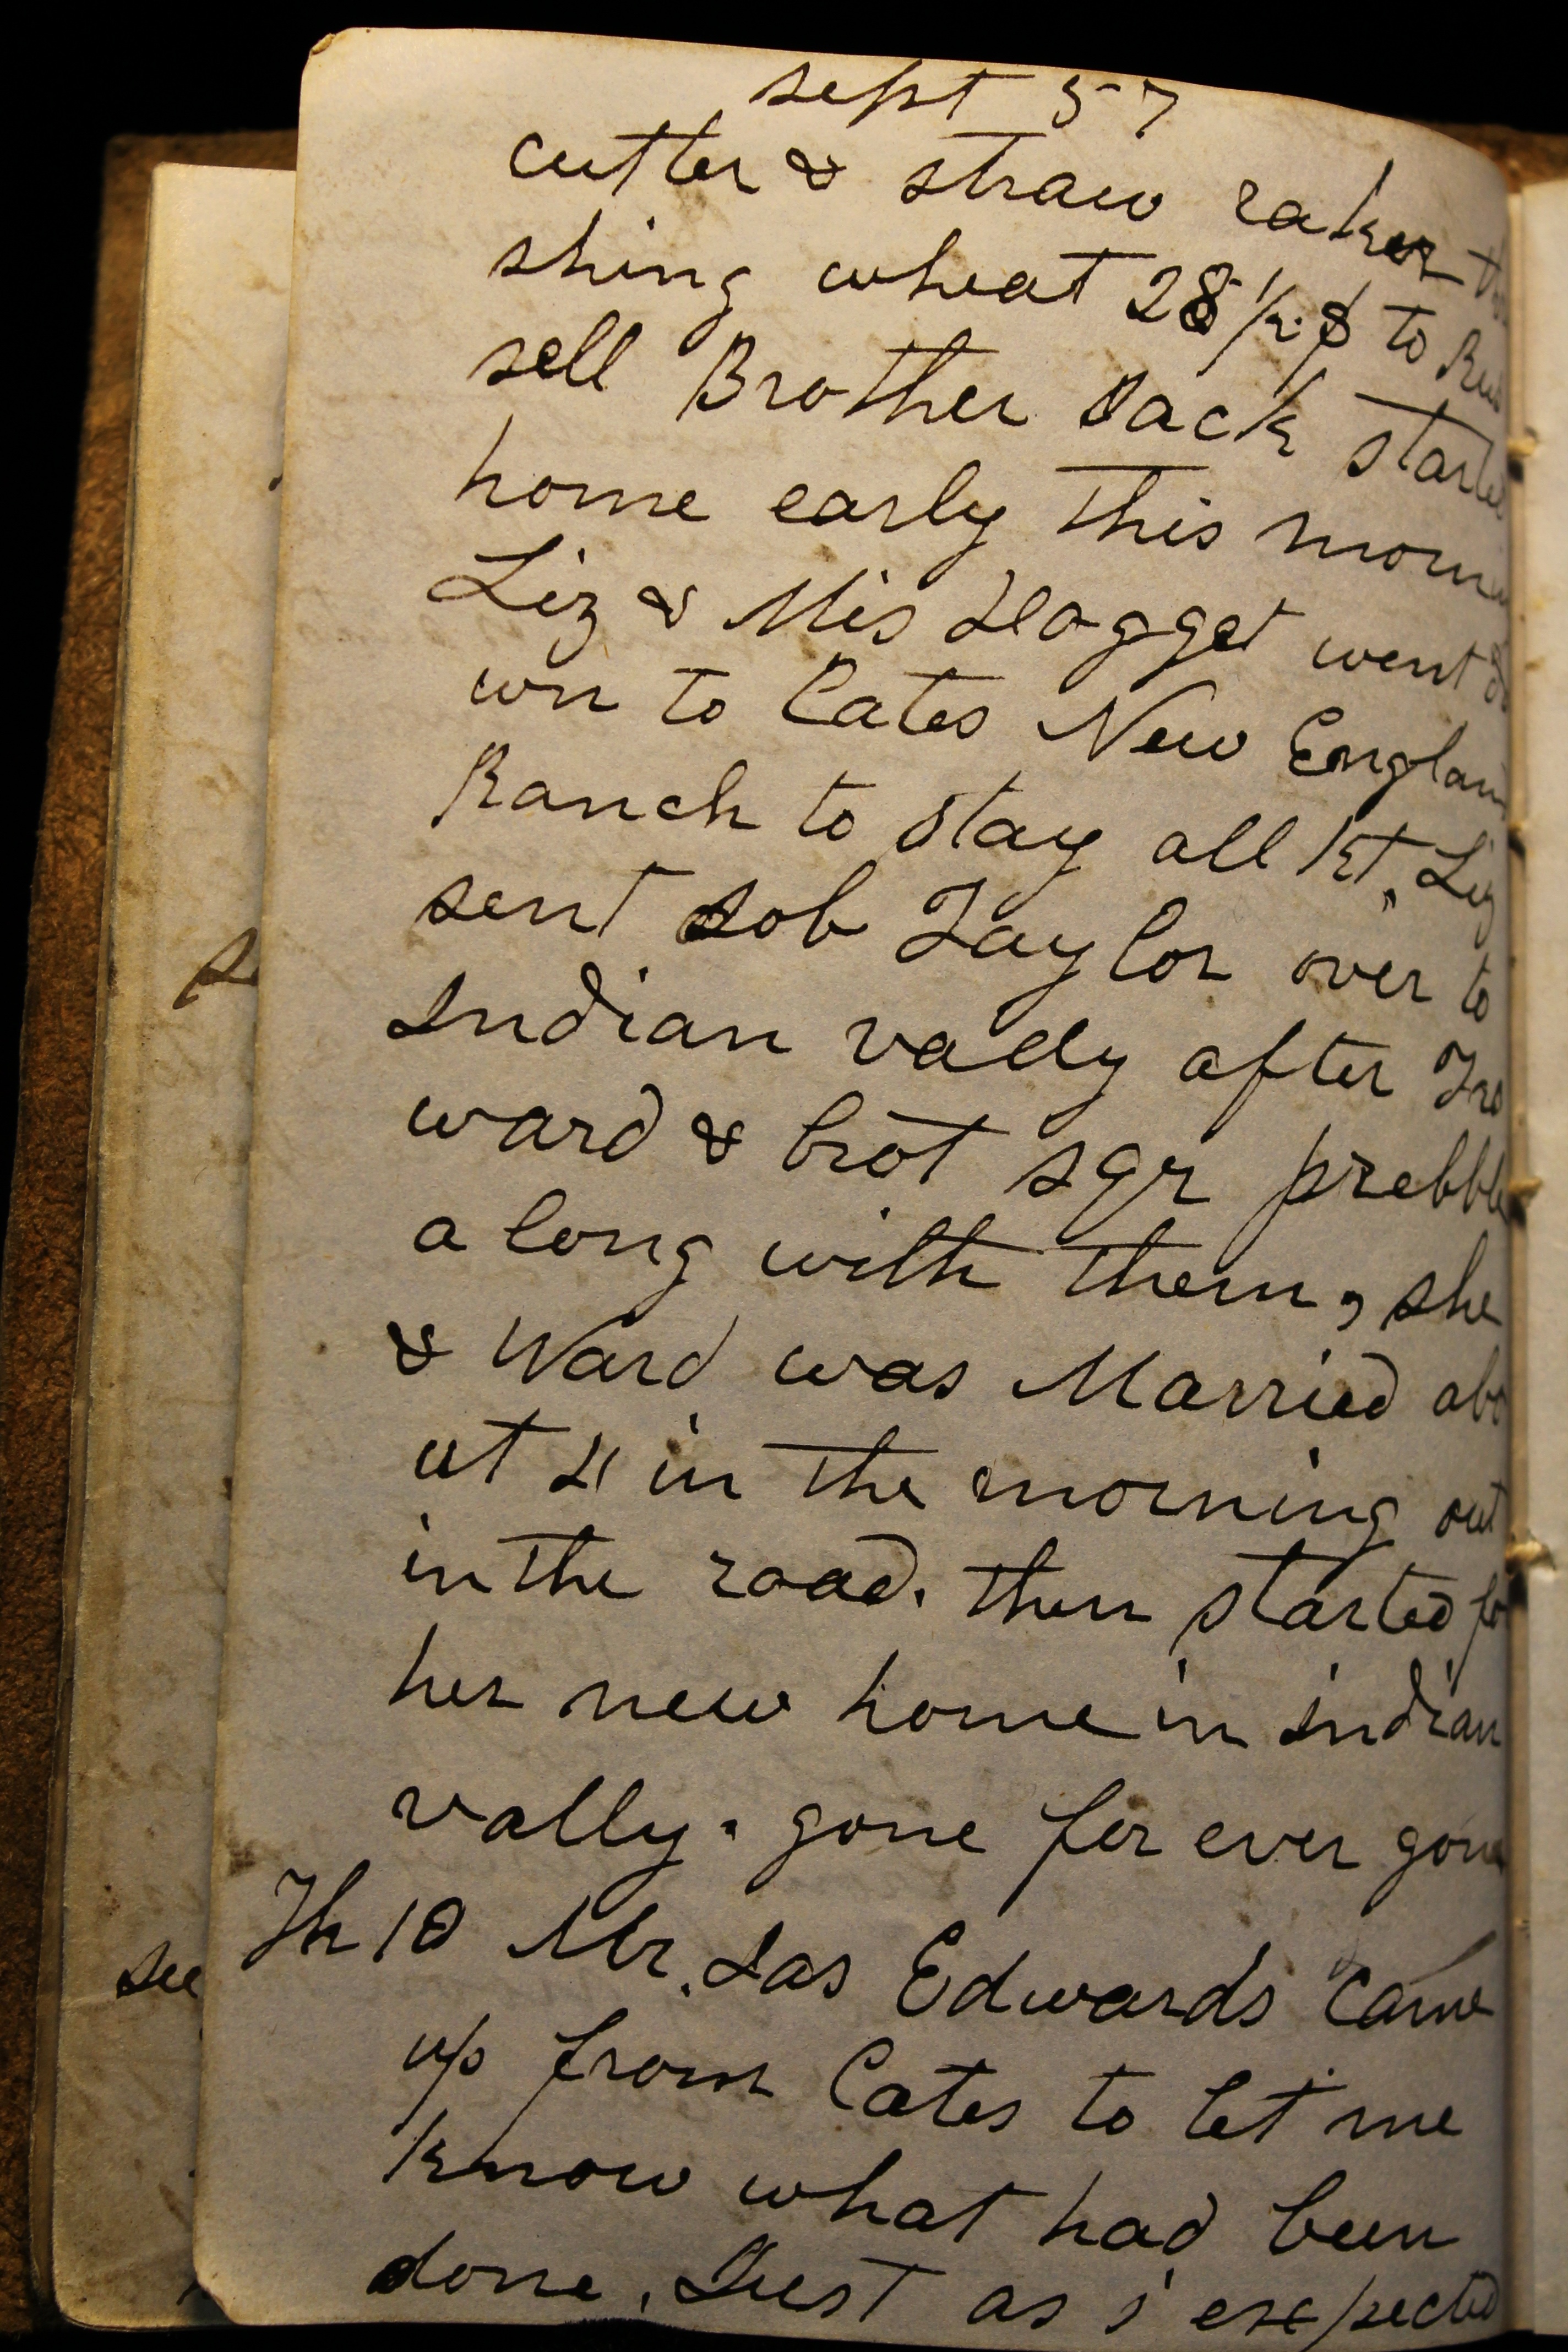 sept 57
cutter & straw raker
shing wheat 28 1/2 $ to
sell Brother Jack starte
home early this morni
Liz & Mis Hogget went do
wn to Cates New Englan
Ranch to stay all Nt. Liz
sent Job Taylor over to
Indian vally after
ward & brot sqr prebble
along with them, she
& Ward was Married abo
ut 4 in the morning out
in the road. then started fo
her new home in indian
vally. gone for ever gone
Th 10 Mr. Jas Edwards came
up from Cates to let me
know what had been
done. Just as i expected
se
see